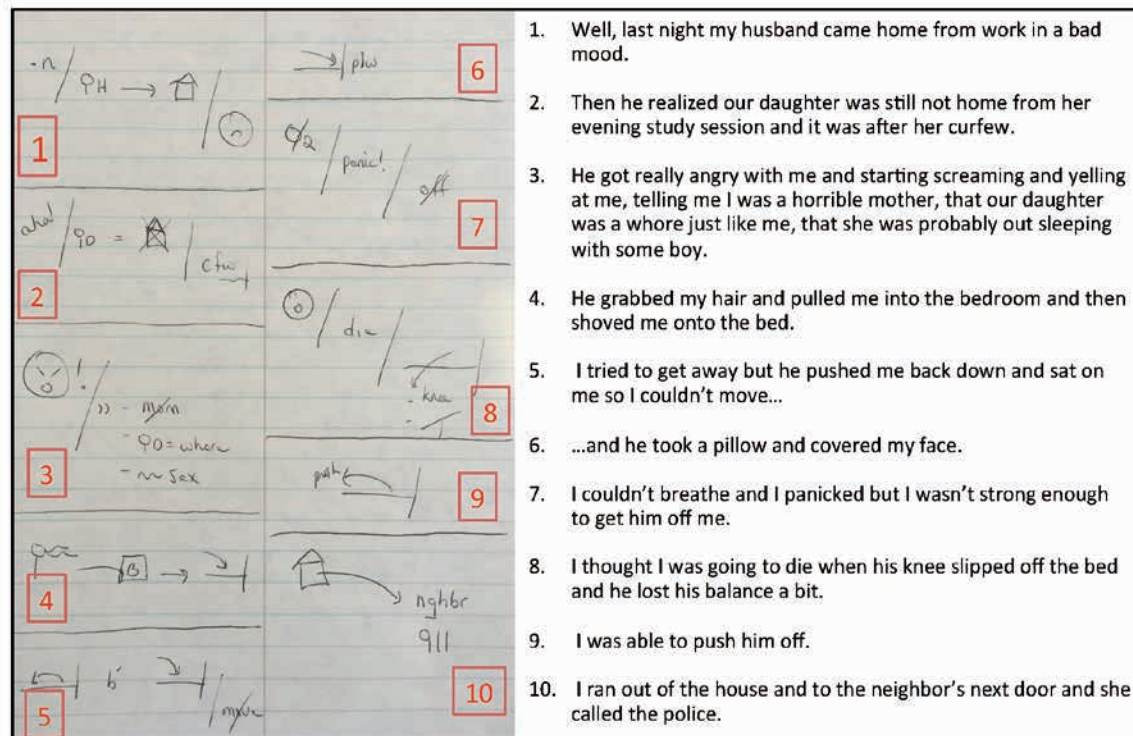 -n / ♀H → 
1
aha! / ♀D = / cfw
2
! / )) - mom
- ♀D = whore
- ~ sex
3
B →
4
b'
/ move
5
plw
6
O2 / panic! / off
7
/ die /
- knee
8
push
9
nghbr
911
10
1. Well, last night my husband came home from work in a bad
mood.
2. Then he realized our daughter was still not home from her
evening study session and it was after her curfew.
3. He got really angry with me and starting screaming and yelling
at me, telling me I was a horrible mother, that our daughter
was a whore just like me, that she was probably out sleeping
with some boy.
4. He grabbed my hair and pulled me into the bedroom and then
shoved me onto the bed.
5. I tried to get away but he pushed me back down and sat on
me so I couldn't move...
6. ...and he took a pillow and covered my face.
7. I couldn't breathe and I panicked but I wasn't strong enough
to get him off me.
8. I thought I was going to die when his knee slipped off the bed
and he lost his balance a bit.
9. I was able to push him off.
10. I ran out of the house and to the neighbor's next door and she
called the police.